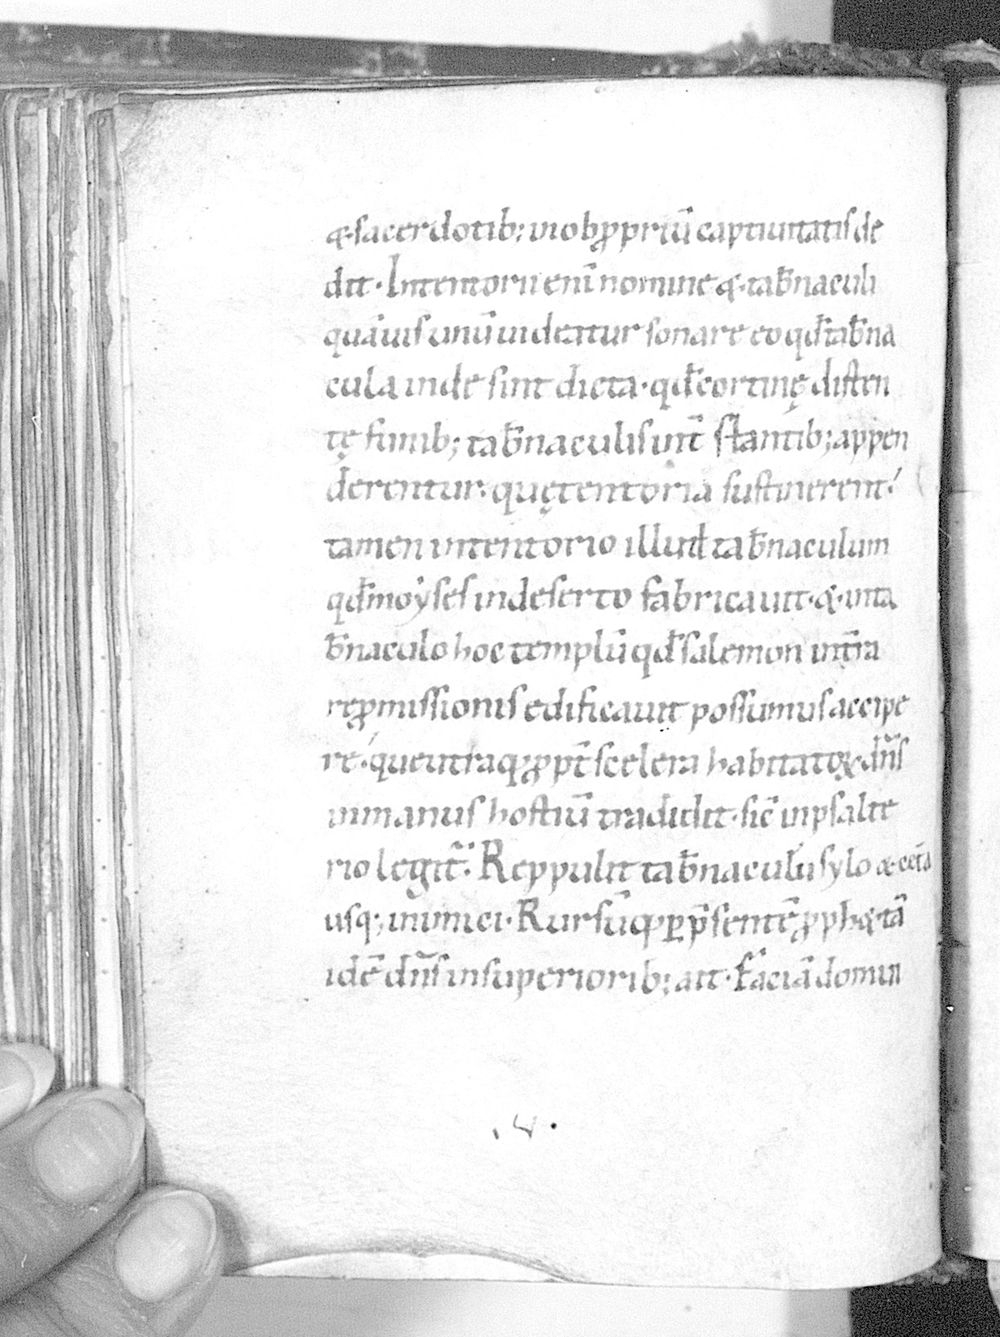 &·sacerdotib; inobꝓpriū captiuitatis de
dit· Intentorii enī nomine &·tab̄naculi
quāuis unū uideatur sonare eo qd̄ tab̄na
cula inde sint dicta· qd̄ cortinę disten
tę funib; tab̄naculis int̄ stantib; appen
derentur· quę tentoria sustinerent·
tamen intentorio illud tab̄naculum
qd̄ moẏses indeserto fabricauit·&·inta
b̄naculo hoc templū qd̄ salemon int̄ra
reꝓmissionis edificauit possumus accipe
re· que utraq; ꝓpt̄ scelera habitatoꝝ dn̄s
inmanus hostiū tradidit· sic̄ inpsalte
rio legit̄· Reppulit tab̄naculū sylo & cet̄a
usq; inimici· Rursū
idē dn̄s insuperiorib; ait· faciā domui
.v.